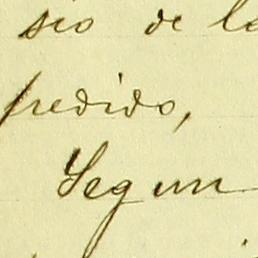 sio de la
predido,
Segun